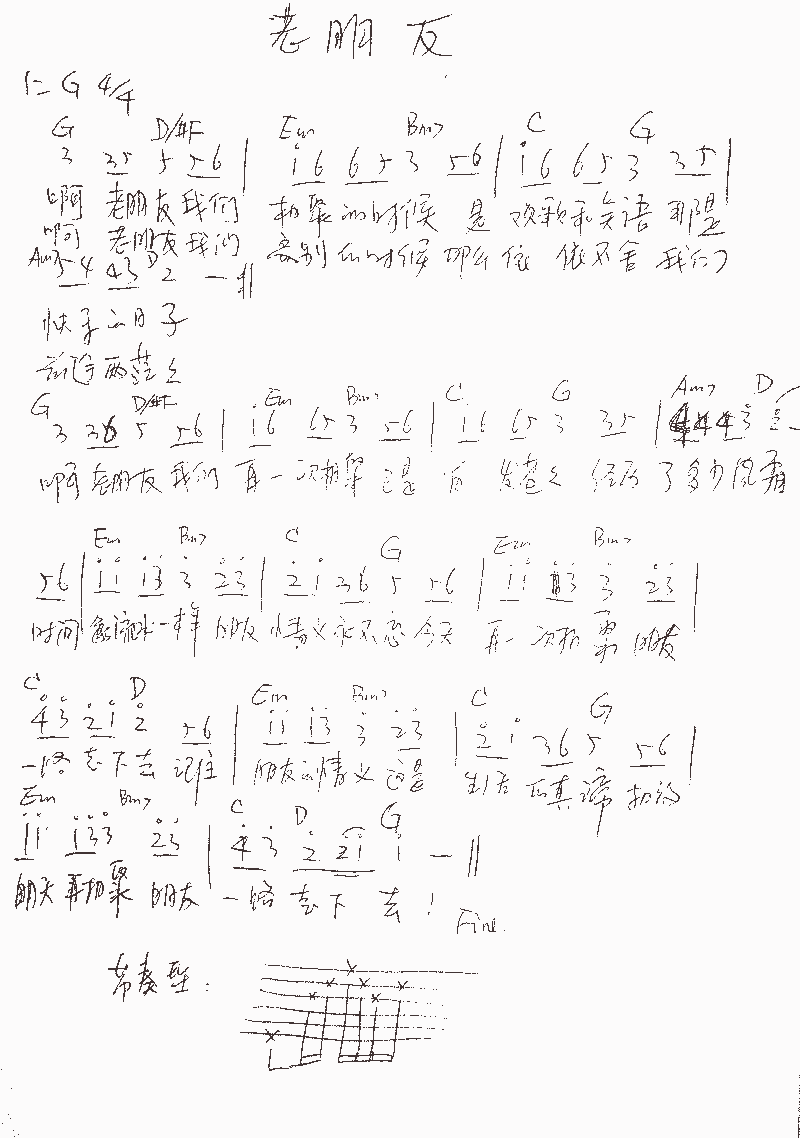 老朋友
1=G 4/4
G D/#F Em Bm7 C G
3 35 5 56 | i6 65 3 56 | i6 65 3 35 |
啊 老朋友我们 相聚的时候 是 欢歌和笑语 那是
啊 老朋友我们 离别的时候 那么依 依不舍 我们
Am7 D
54 43 2 — ‖
快乐的日子
前途两茫茫
G D/#F Em Bm7 C G Am7 D
3 36 5 56 | i6 65 3 56 | i6 65 3 35 | 44 43 2
啊 老朋友 我们 再一次相聚 已是 经历了多少风霜
Em Bm7 C G Em Bm7
56 | ii i3 3 23 | 2i 36 5 56 | ii i3 3 23 |
时间像流水一样 朋友 情义永不忘 今天 再一次相聚 朋友
C D Em Bm7 C G
43 2i 2 56 | ii i3 3 23 | 2i 36 5 56 |
一路走下去 记住 朋友的情义 这是 生活的真谛 相约
Em Bm7 C D G
ii i33 23 | 43 2 2i i — ‖
明天再相聚 朋友 一路走下去!
Fine.
节奏型: